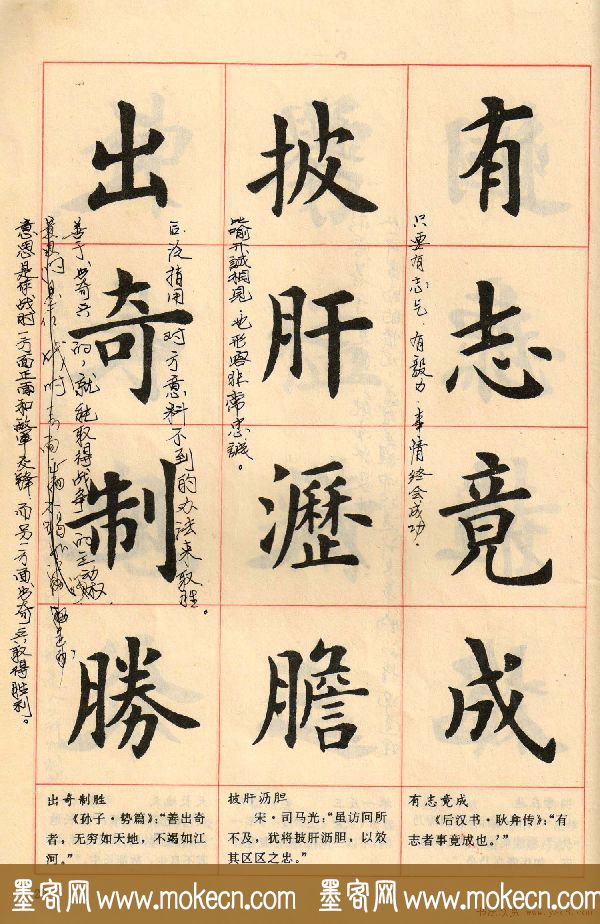 有志竟成
只要有志气、有毅力、事情终会成功.
披肝瀝膽
比喻开誠相見,也形容非常忠誠。
出奇制勝
后泛指用对方意料不到的办法来取胜。
善于出奇兵的,就能取得战争的主动权.
意思是作战时一方面正面和敌军交锋,而另一方面出奇兵取得胜利。
有志竟成
《后汉书·耿弇传》:“有
志者事竟成也。’”
披肝沥胆
宋·司马光:“虽访问所
不及,犹将披肝沥胆,以效
其区区之忠。”
出奇制胜
《孙子·势篇》:“善出奇
者,无穷如天地,不竭如江
河。”
墨客网 www.mokecn.com 墨客网 www.mokecn.com